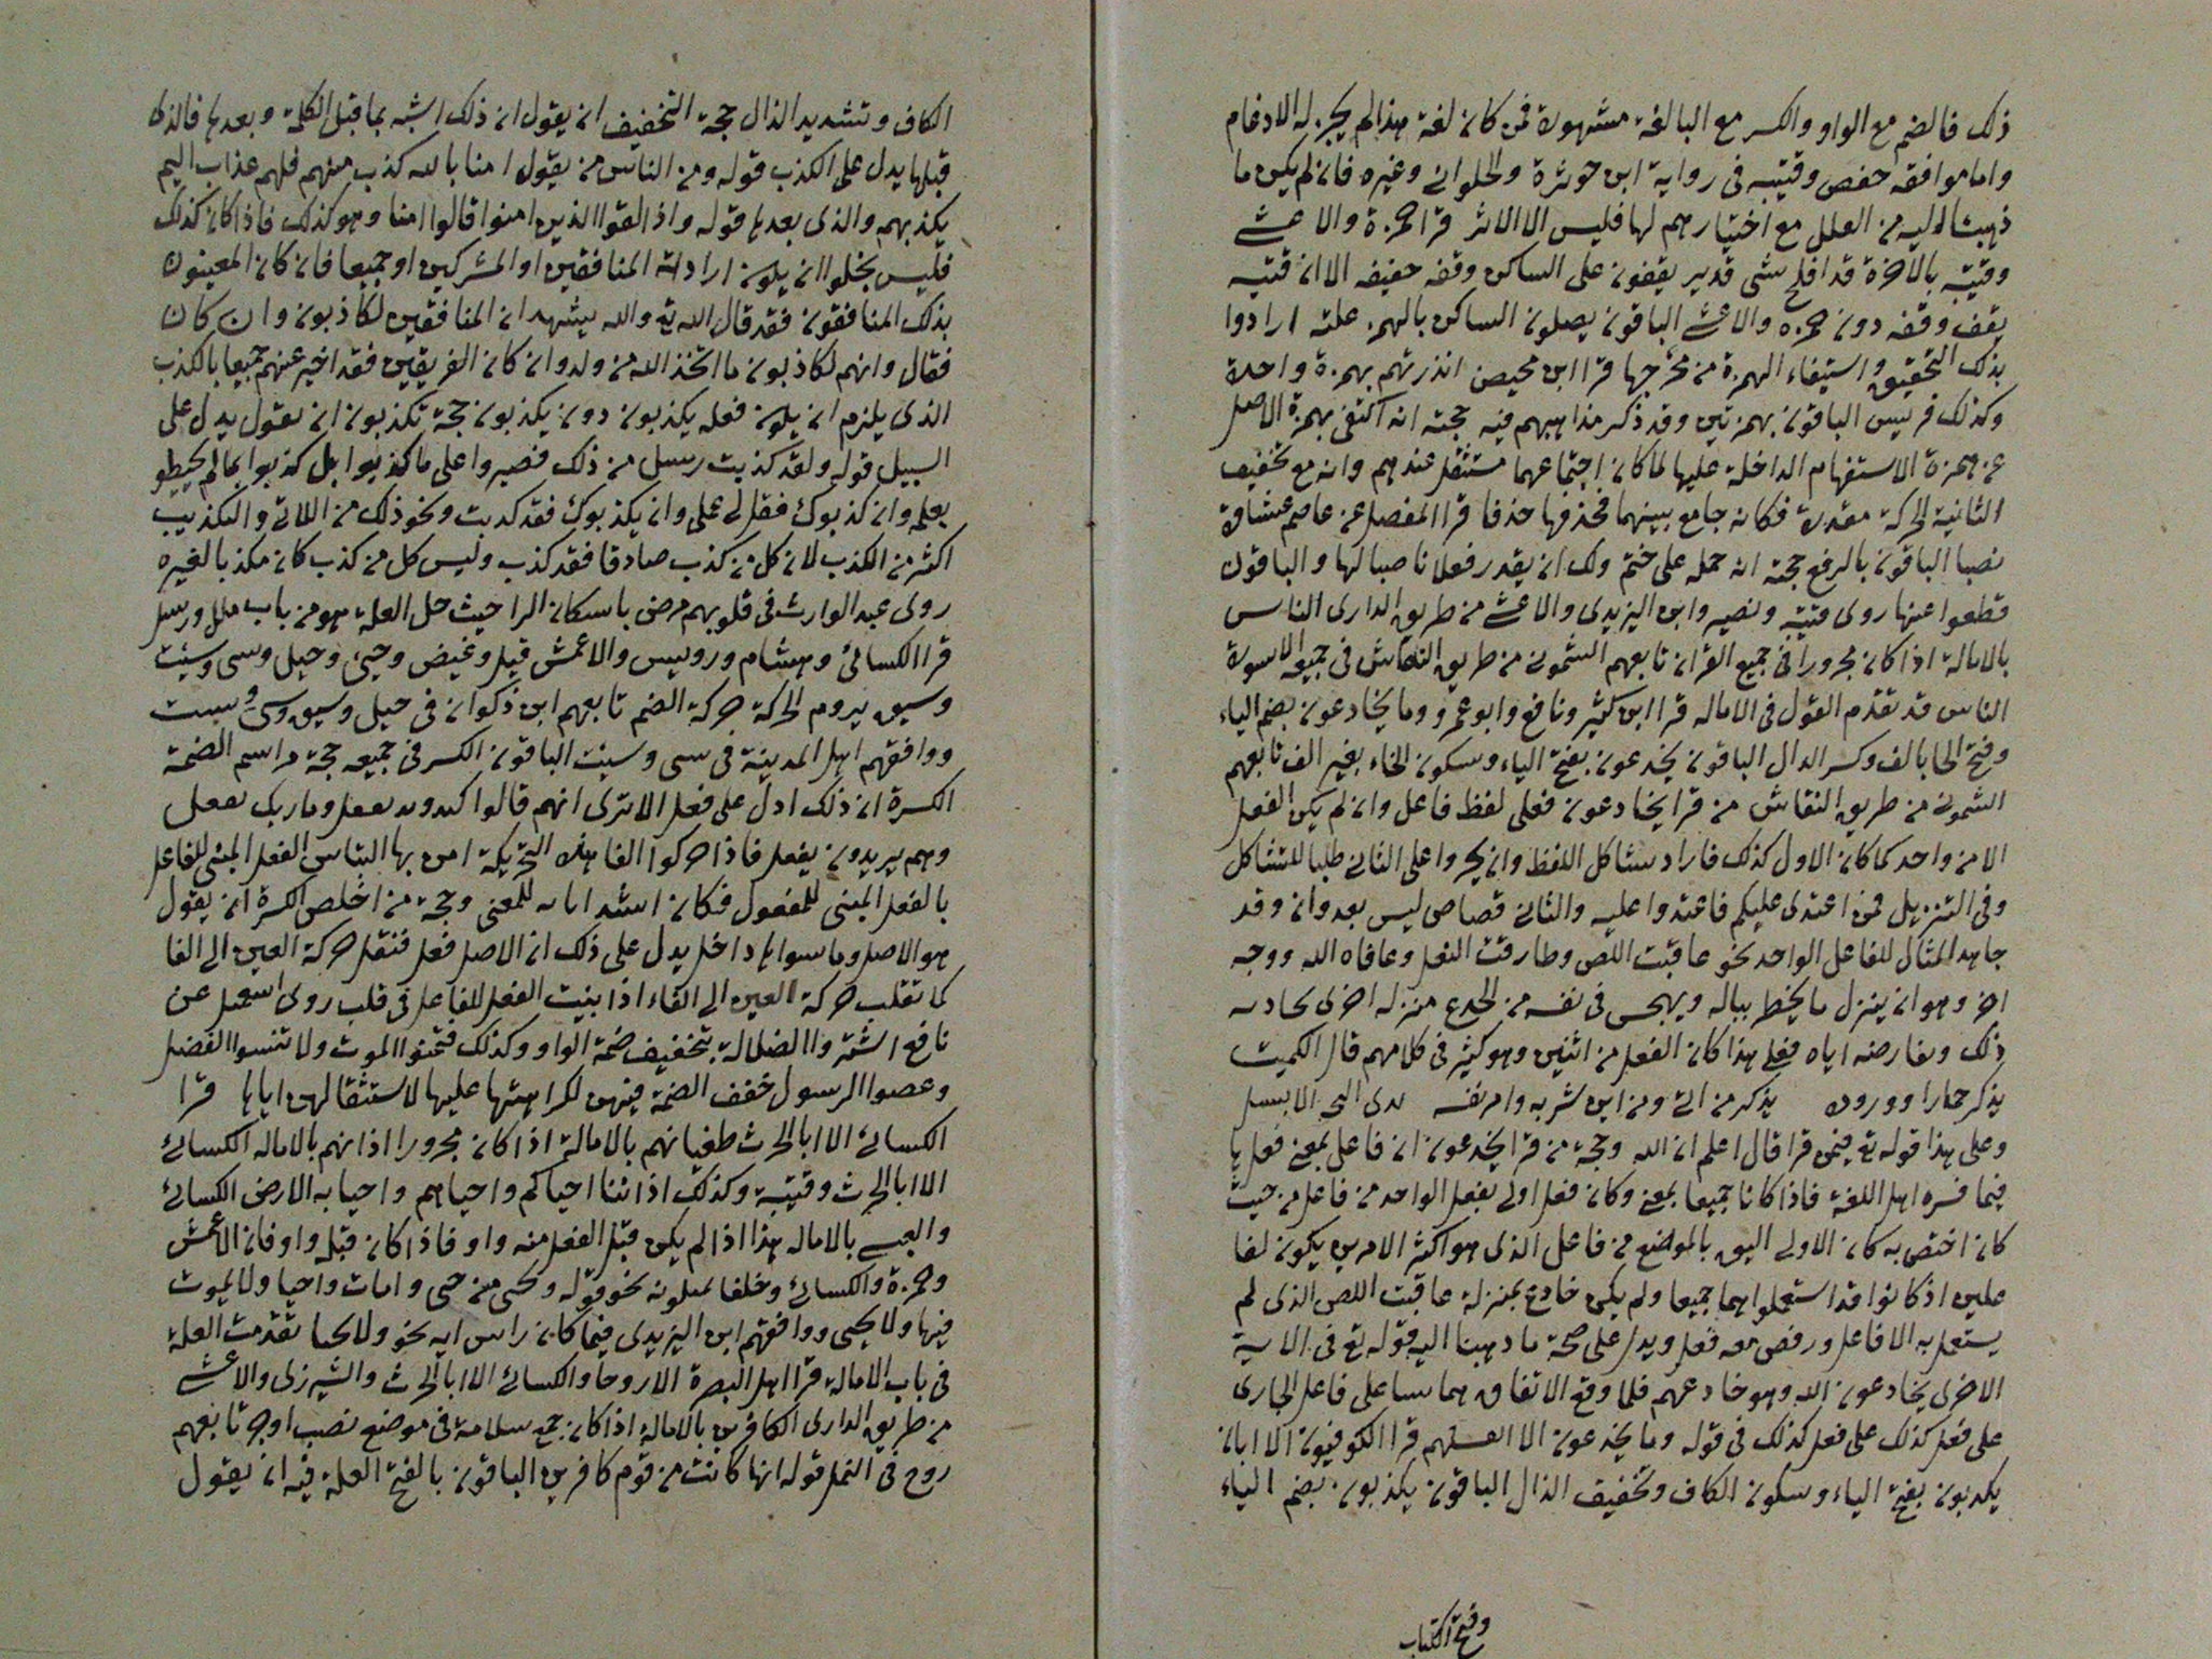 ذلك فالضم مع الواو والكسر مع البا لغة مشهورة فمن كانت لغة هذا لم يجز له الادغام
واما موافقه حفص وقتيبه فى رواية ابن حوثرة والحلوانى وغيره فان لم يكن ما
ذهبنا اليه من العلل مع اختيارهم لها فليس الا الاثر قرا حمزة والاعشى
وقتيبة بالاخرة قد افلح شى قدير يقفون على الساكن وقفه خفيفه الا ان قتيبه
يقف وقفه دون حمزه والاعشى الباقون يصلون الساكن بالهمز علته ارادوا
بذلك التحقيق واستيفاء الهمزة من مخرجها قرا ابن محيصن انذرتهم بهمزة واحدة
وكذلك فى يس الباقون بهمزتين وقد ذكر مذاهبهم فيه حجته انه اكتفى بهمزة الاصل
عن همزة الاستفهام الداخلة عليها لما كان اجتماعهما مستثقل عندهم وانه مع تخفيف
الثانية الحركة مقدرة فكانه جامع بينهما فحذفها حذفا قرا المفضل عن عاصم غشاوة
نصبا الباقون بالرفع حجته انه حمله على ختم ولك ان يقدر فعلا ناصبا لها والباقون
قطعوا عنها روى قتيبة ونصير وابن اليزيدى والاعشى من طريق الدارى الناس
بالامالة اذا كان مجرورا فى جميع القران تابعهم الشمونى من طريق النقاش فى جميعه الا سورة
الناس قد تقدم القول فى الاماله قرا ابن كثير ونافع وابو عمرو وما يخادعون بضم الياء
وفتح الخا بالف وكسر الدال الباقون يخدعون بفتح الياء وسكون الخاء بغير الف تابعهم
الشمونى من طريق النقاش من قرا يخادعون فعلى لفظ فاعل وان لم يكن الفعل
الا من واحد كما كان الاول كذلك فاراد تشاكل اللفظ وان يجروا على الثانى طلبا للتشاكل
وفى التنزيل فمن اعتدى عليكم فاعتدوا عليه والثانى قصاص ليس بعدوان وقد
جا هذا المثال للفاعل الواحد نحو عاقبت اللص وطارقت النعل وعافاه الله ووجه
اخر وهو ان ينزل ما يخطر بباله ويهجس فى نفسه من الخدع منزله اخرى يحادثه
ذلك ويعارضه اياه فعلى هذا كان الفعل من اثنين وهو كثير فى كلامهم قال الكميت
يذكر حمارا ووروده يذكر من انى ومن اين شربه وامر نفسه الابل
وعلى هذا قوله تع فيمن قرا قال اعلم ان الله وحجة من قرا يخدعون ان فاعل بمعنى فعل يا
فيما فسره اهل اللغة فاذا كانا جميعا بمعنى وكان فعل اولى بفعل الواحد من فاعل من حيث
كان اختص به كان الاولى اليق بالموضع من فاعل الذى هو اكثر الامرين يكون لفا
علين اذ كانوا قد استعملوا هما جميعا ولم يكن خادع بمنزلة عاقبت اللص الذى لم
يستعمل به الا فاعل ورفض معه فعل ويدل على صحة ما ذهبنا اليه قوله تع فى الاية
الاخرى يخادعون الله وهو خادعهم فلما وقع الاتفاق هما سا على فاعل الجارى
على فعل كذلك على فعل كذلك فى قوله وما يخدعون الا انفسهم قرا الكوفيون الا ابان
يكذبون بفتح الياء وسكون الكاف وتخفيف الذال الباقون يكذبون بضم الياء
وفتح الكتاب
الكاف وتشديد الذال حجة التخفيف ان يقول ان ذلك اشبه بما قبل الكلمة وبعدها فالذى
قبلها يدل على الكذب قوله ومن الناس من يقول امنا بالله كذب منهم فلهم عذاب اليم
يكذبهم والذى بعدها قوله واذا لقوا الذين امنوا قالوا امنا وهو كذلك فاذا كان كذلك
فليس يخلوا ان يكون اراد المنافقين او المشركين او جميعا فان كان المعينون
بذلك المنافقون فقد قال الله تع والله يشهد ان المنافقين لكاذبون وان كان
فقال وانهم لكاذبون ما اتخذ الله من ولد وان كان الفريقين فقد اخبر عنهم جميعا بالكذب
الذى يلزم ان يكون فعله يكذبون دون يكذبون حجة تكذبون ان تقول يدل على
السبيل قوله ولقد كذبت رسل من ذلك فصبروا على ما كذبوا بل كذبوا بما لم يحيطو
بعلمه وان كذبوك فقل لى عملى وان يكذبوك فقد كذبت ونحو ذلك من اللاتى والتكذيب
اكثر من الكذب لان كل من كذب صادقا فقد كذب وليس كل من كذب كان مكذبا لغيره
روى عبد الوارث فى قلوبهم مرض باسكان الرا حيث حل العلة هو من باب ملل ورسل
قرا الكسائى وهشام ورويس والاعمش قيل وغيض وجيئ وحيل وسى وسيئت
وسيق بروم الحركة حركة الضم تابعهم ابن ذكوان فى حيل وسيق وسى وسيت
ووافقهم اهل المدينة فى سى وسيئت الباقون الكسر فى جميعه حجة من اسم الضمة
الكسرة ان ذلك ادل على فعل الا ترى انهم قالوا يفعل وما ربك بفعل
وهم يريدون يفعل فاذا حركوا الفا هذه التحريكة امن بها التباس الفعل المبنى للفاعل
بالفعل المبنى للمفعول فكان اشد ابانه للمعنى وحجة من اخلص الكسرة ان يقول
هو الاصل وما سواها داخل يدل على ذلك ان الاصل فعل فنقل حركة العين الى الفا
كما تقلب حركة العين الى الفاء اذا بنيت الفعل للفاعل فى قلب روى اسمعيل عن
نافع اشتروا الضلالة بتخفيف ضمة الواو وكذلك فتمنوا الموت ولا تنسوا الفضل
وعصوا الرسول خفف الضمة فيهن لكراهتها عليها لاستثقالهن اياها قرا
الكسائى الا ابا الحرث طغيانهم بالامالة اذا كان مجرورا اذانهم بالاماله الكسائى
الا ابا الحرث وقتيبة وكذلك اذا ثنا احياكم واحياهم واحيا به الارض الكسائى
والعبسى بالاماله هذا اذا لم يكن قبل الفعل منه واو فاذا كان قبله واو فان الاعمش
وحمزة والكسائى وخلفا يميلونه نحو قوله ويحيى من حى وامات واحيا ولا يموت
فيها ولا يحيى ووافقهم ابن اليزيدى فيما كان راس ايه نحو ولا يحيا تقدمت العلة
فى باب الامالة قرا اهل البصرة الا روحا والكسائى الا ابا الحرث والشيزرى والاعشى
من طريق الدارى الكافرين بالامالة اذا كان جمع سلامة فى موضع نصب او جر تابعهم
روح فى النمل قوله انها كانت من قوم كافرين الباقون بالفتح العلة فيه ان يقول